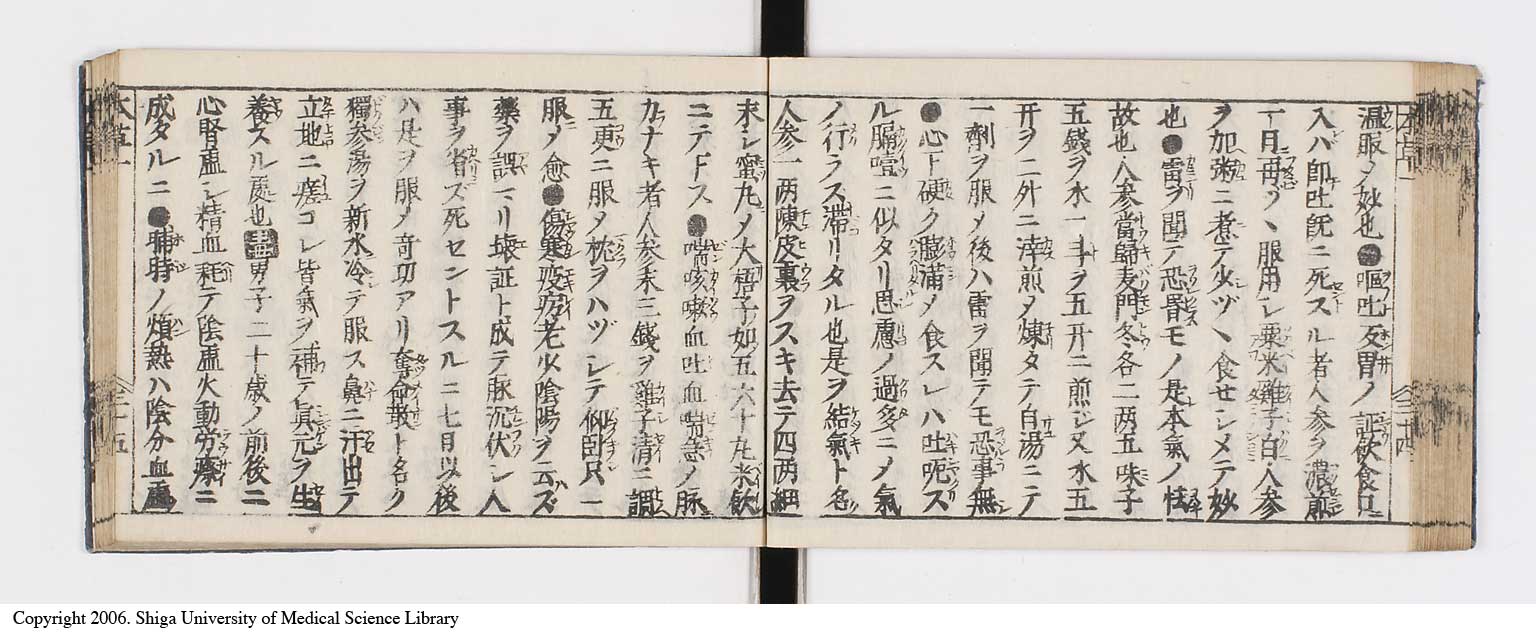 温服メ妙也●嘔吐反胃ノ証飲食口ニ
入ハ即吐既ニ死スル者人参ヲ濃煎
一月毎ツヽ服用シ粟米雞子白人参
ヲ加粥ニ煮テ少ヅヽ食セシメテ妙
也●雷ヲ聞テ恐畏モノ是本氣ノ怯
故也人参當歸麦門冬各二两五味子
五錢ヲ水一斗ヲ五升ニ煎ジ又水五
升ヲ二外ニ滓煎メ煉タテ白湯ニテ
一劑ヲ服メ後ハ雷ヲ聞テモ恐事無シ
●心下硬ク膨満メ食スレハ吐呃ス
ル膈噎ニ似タリ思慮ノ過多ニメ氣
ノ行ラス滞リタル也是ヲ結氣ト名
人参一两陳皮裏ヲスキ去テ四两細
末シ蜜丸ノ大梧子如五六十丸米飲
ニテ下ス●喘咳嗽血吐血喘急ノ脉
カナキ者人参末三錢ヲ雞子清ニ調
五更ニ服メ枕ヲハヅシテ仰臥只一
服メ愈●傷寒疫病老少陰陽ヲ云ズ
藥ヲ誤マリ壊証ト成テ脉沉伏シ人
事ヲ省ズ死セントスルニ七日以後
ハ是ヲ服メ竒功アリ奪命散ト名ク
獨参湯ヲ新水冷テ服ス鼻ニ汗出テ
立地ニ瘥コレ皆氣ヲ補テ眞元ヲ生
養スル處也男子二十歳ノ前後ニ
心腎虛シ精血耗テ陰虛火動労瘵ニ
成タルニ●晡時ノ煩熱ハ陰分血虛
本草一
三十五